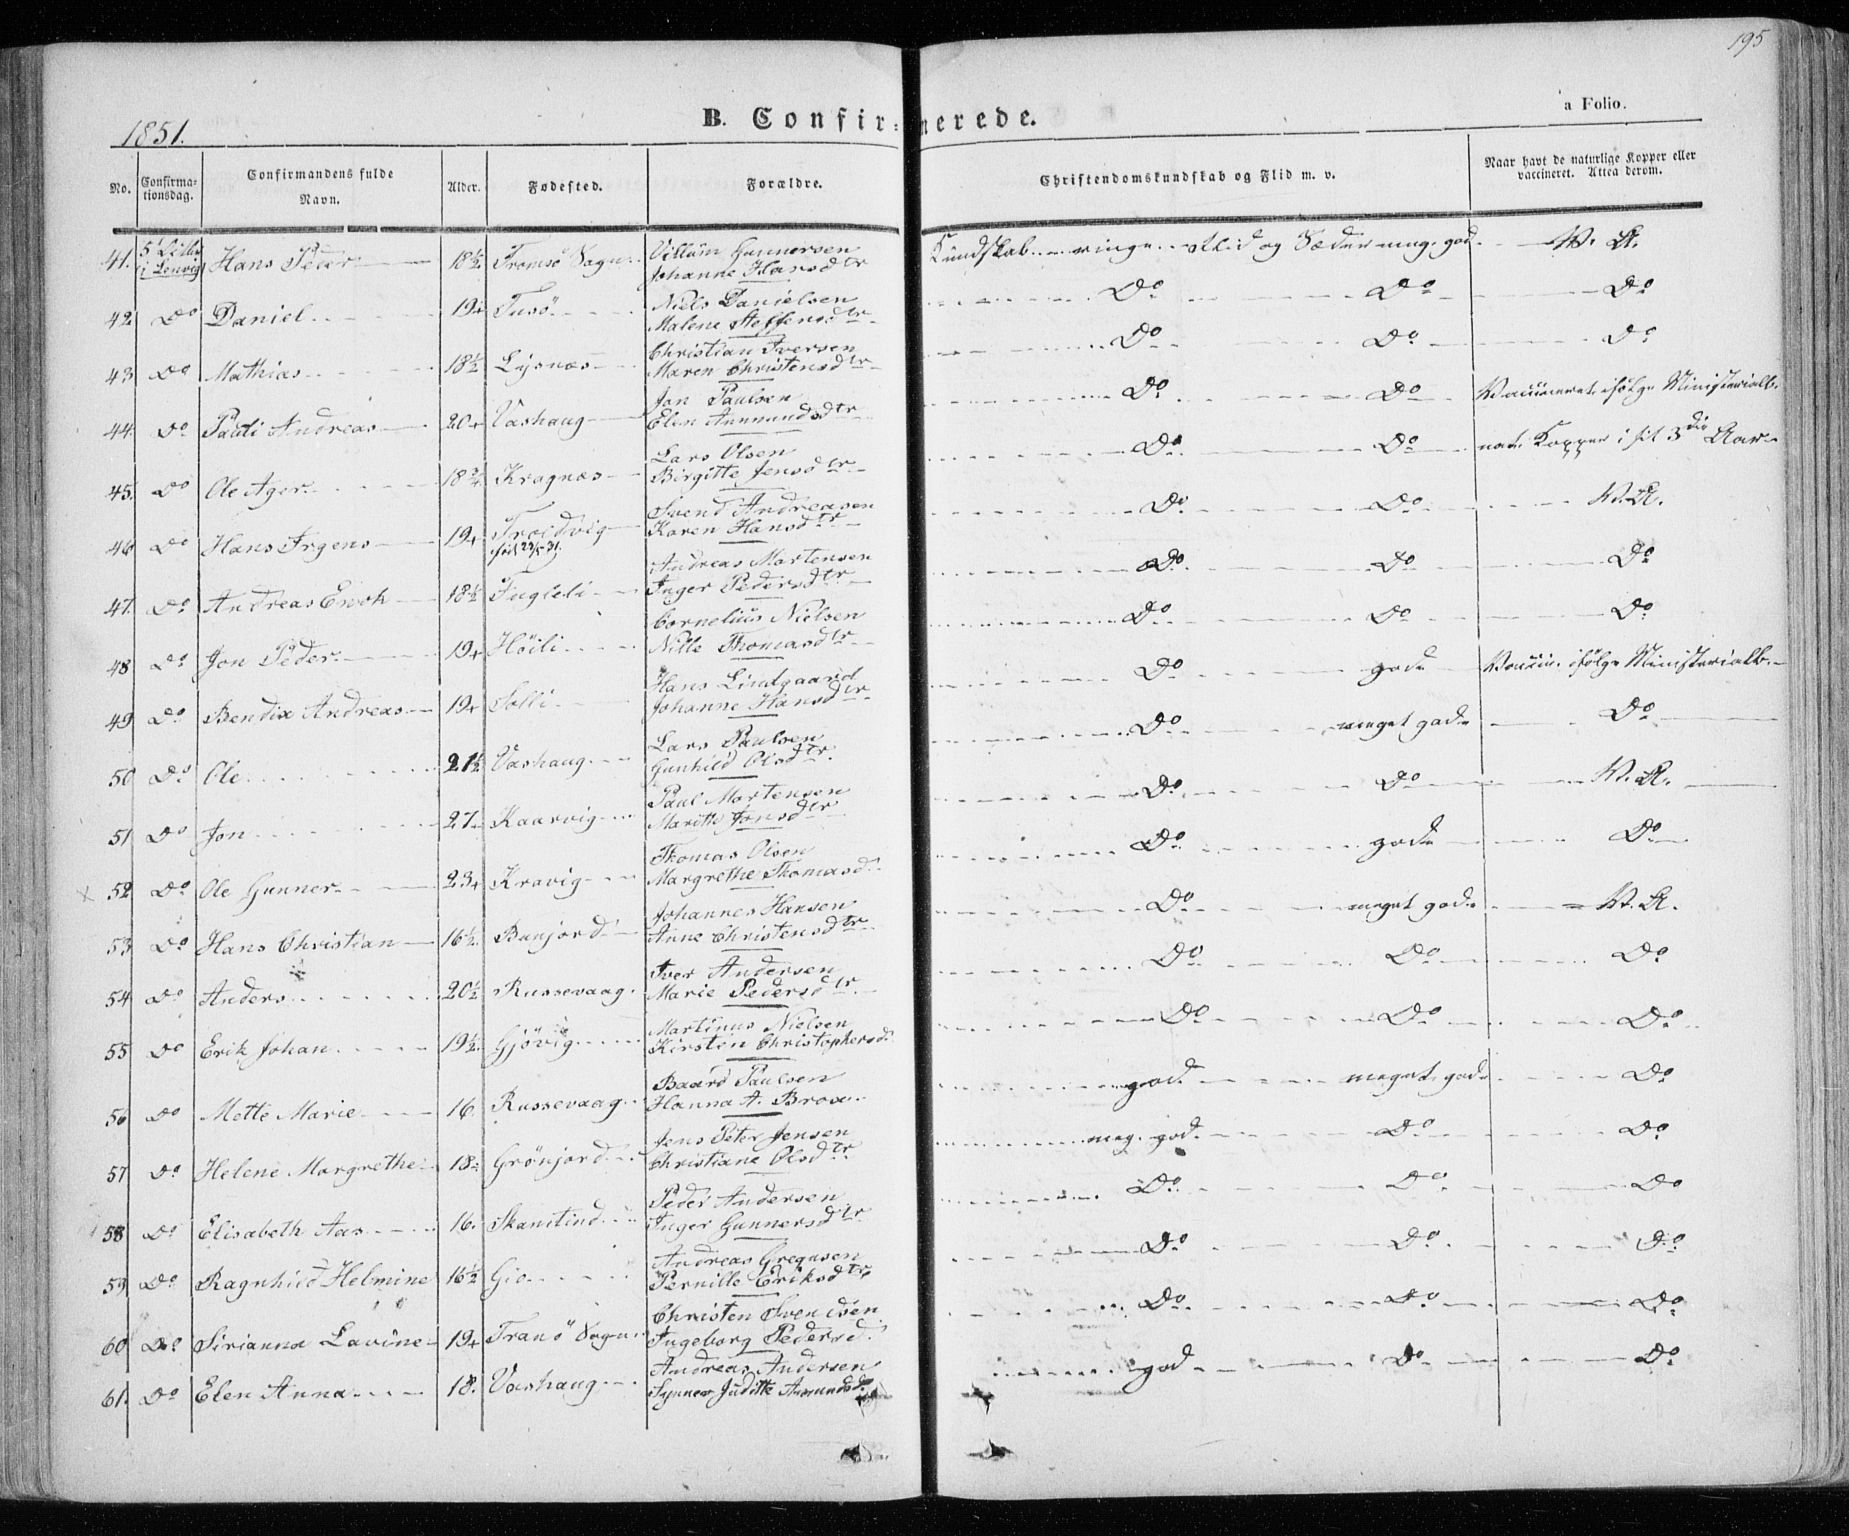 195
a Folio.
B. Confirmerede.
1851.
No. Confirmationsdag. Confirmandens fulde Navn. Alder. Fødested. Forældre. Christendomskundskab og Flid m. v. Naar havt de naturlige Kopper eller vaccineret. Attea derom.
41. i Lenvig Hans Peder 18½ Tromsö Sogn Villum Gunnersen Johanne Hansdtr Kundskab ringe. Flid og Sæder meg. god. V. A.
42. Do Daniel 19 Tusö Niels Danielsen Malene Steffensdtr Do Do Do
43. Do Mathias 18½ Lysnæs Christian Iversen Maren Christensdtr Do Do Do
44. Do Pauli Andreas 20 Vashaug Jon Paulsen Elen Ammundsdtr Do Do Vaccineret ifölge Ministerialb.
45. Do Ole Ager 18¾ Kragnæs Lars Olsen Birgitte Jensdtr Do Do nat. Kopper i sit 3die Aar
46. Do Hans Irgens 19 Troldvig föd 29/5 31. Svend Andreasen Karen Hansdtr Do Do V. A.
47. Do Andreas Enok 18½ Fugleli Andreas Mortensen Inger Pedersdtr Do Do Do
48. Do Jon Peder 19 Höili Cornelius Nielsen Nille Thomasdtr Do Do Do
49. Do Bendix Andreas 19 Solli Hans Lindgaard Johanne Hansdtr Do god Vaccin. ifölge Ministerialb.
50. Do Ole 21½ Vashaug Lars Paulsen Gunhild Olsdtr. Do meget god Do
51. Do Jon 27 Kaarvig Paul Mortensen Maritte Jonsdtr Do Do V. A.
52. Do Ole Gunner 23 Kravig Thomas Olsen Margrethe Thomasd. Do god Do
53. Do Hans Christian 16½ Bunjord Johannes Hansen Anne Christensdtr. Do meget god V. A.
54. Do Anders 20½ Russevaag Iver Andersen Marie Pedersdtr. Do Do Do
55. Do Erik Johan 19½ Gjövig Martinus Nielsen Kirsten Christophersd. Do Do Do
56. Do Mette Marie 16 Russevaag Baard Paulsen Hanna A. Brox god meget god Do
57. Do Helene Margrethe 18 Grönjord Jens Peter Jensen Christiane Olsdtr meg. god Do Do
58. Do Elisabeth Aas 16. Skantind Peder Andersen Inger Gunnersdtr Do Do Do
59. Do Ragnhild Helmine 16½ Gio Andreas Gregusen Pernille Eriksdtr. Do Do Do
60. Do Sirianna Lavine 19 Tranö Sogn Christen Svendsen Ingeborg Pedersd. Do Do Do
61. Do Elen Anna 18. Vashaug Andreas Andersen Synner Juditte Asmundsd. god Do Do